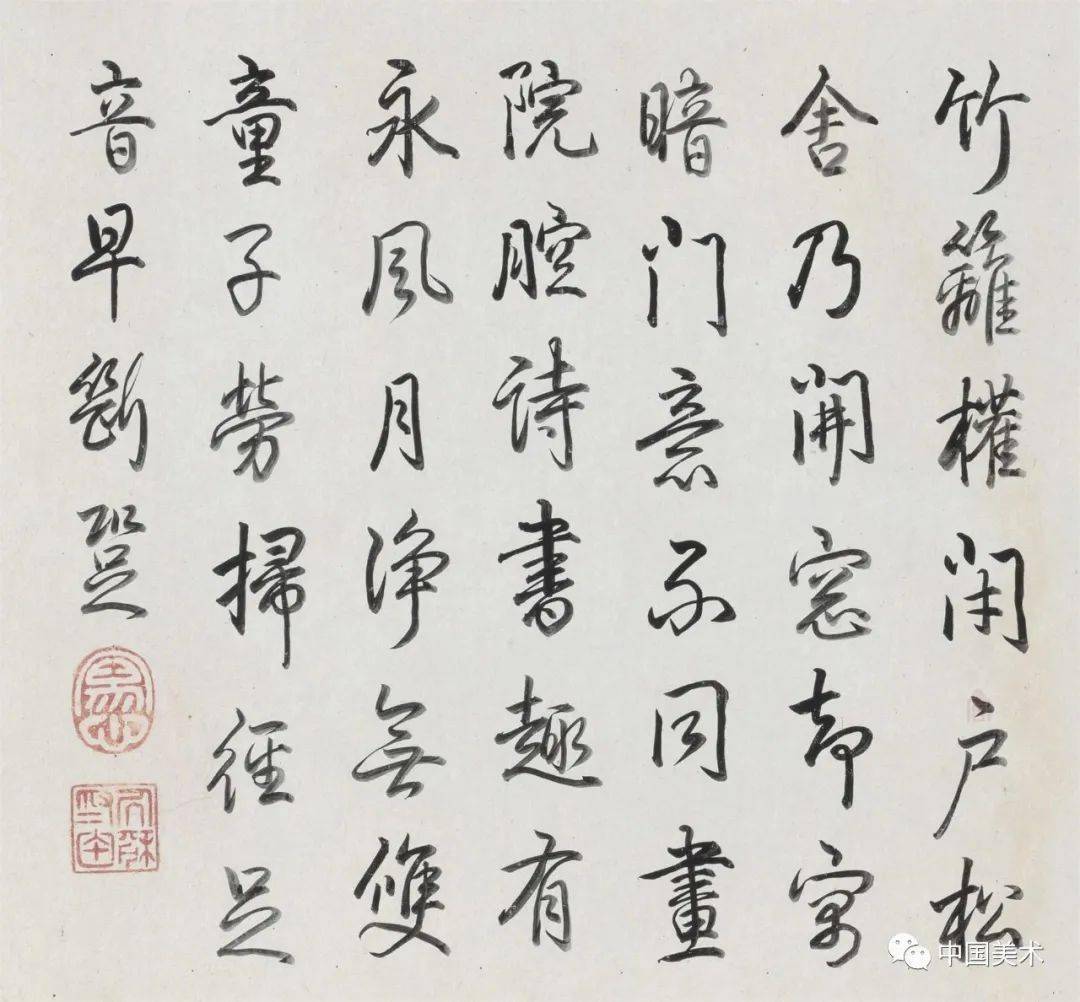 竹籬權閉户松
舍乃開窓却寫
暗門意不同畫
院腔詩書趣有
永風月淨無雙
童子勞掃徑足
音早斷跫
中国美术